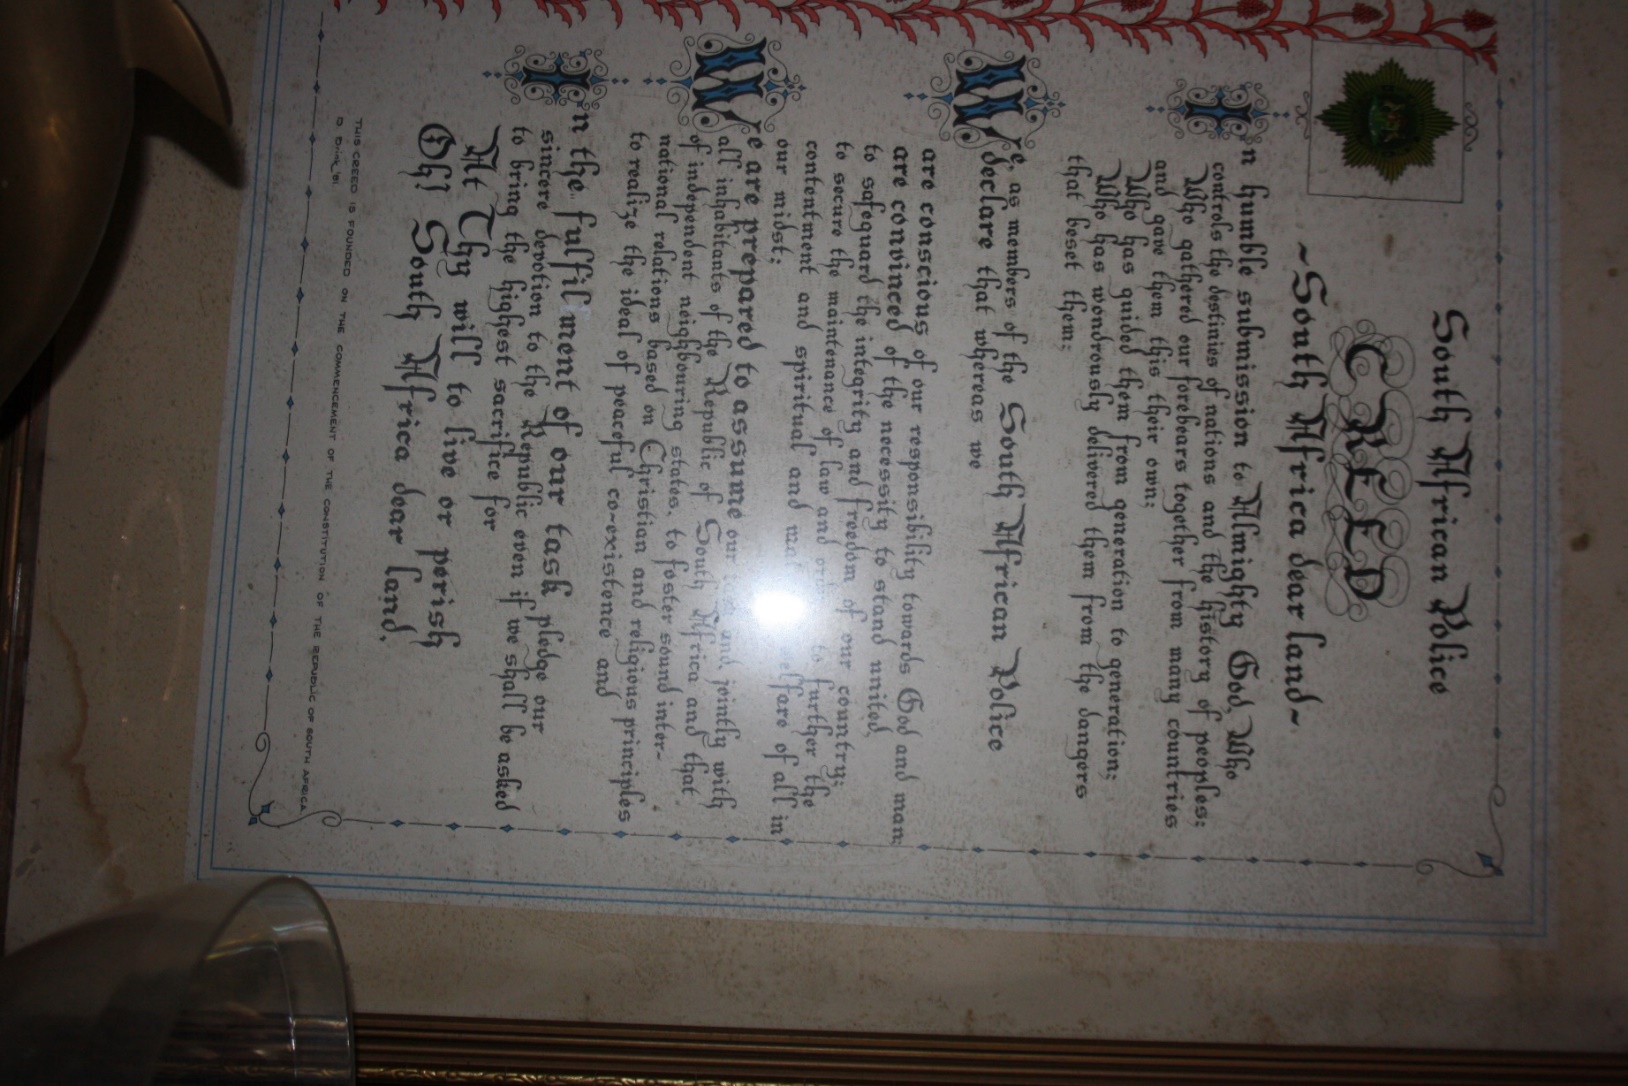 South African Police
CREED
~South Africa dear land~
In humble submission to Almighty God, Who
controls the destinies of nations and the history of peoples;
Who gathered our forebears together from many countries
and gave them this their own;
Who has guided them from generation to generation;
Who has wondrously delivered them from the dangers
that beset them;
We, as members of the South African Police
declare that whereas we
are conscious of our responsibility towards God and man;
are convinced of the necessity to stand united,
to safeguard the integrity and freedom of our country;
to secure the maintenance of law and order to further the
contentment and spiritual and welfare of all in
our midst;
We are prepared to assume our and, jointly with
all inhabitants of the Republic of South Africa and that
of independent neighbouring states, to foster sound inter-
national relations based on Christian and religious principles
to realize the ideal of peaceful co-existence and
In the fulfilment of our task pledge our
sincere devotion to the Republic even if we shall be asked
to bring the highest sacrifice for
At Thy will to live or perish
Oh! South Africa dear land,
THIS CREED IS FOUNDED ON THE COMMENCEMENT OF THE CONSTITUTION OF THE REPUBLIC OF SOUTH AFRICA